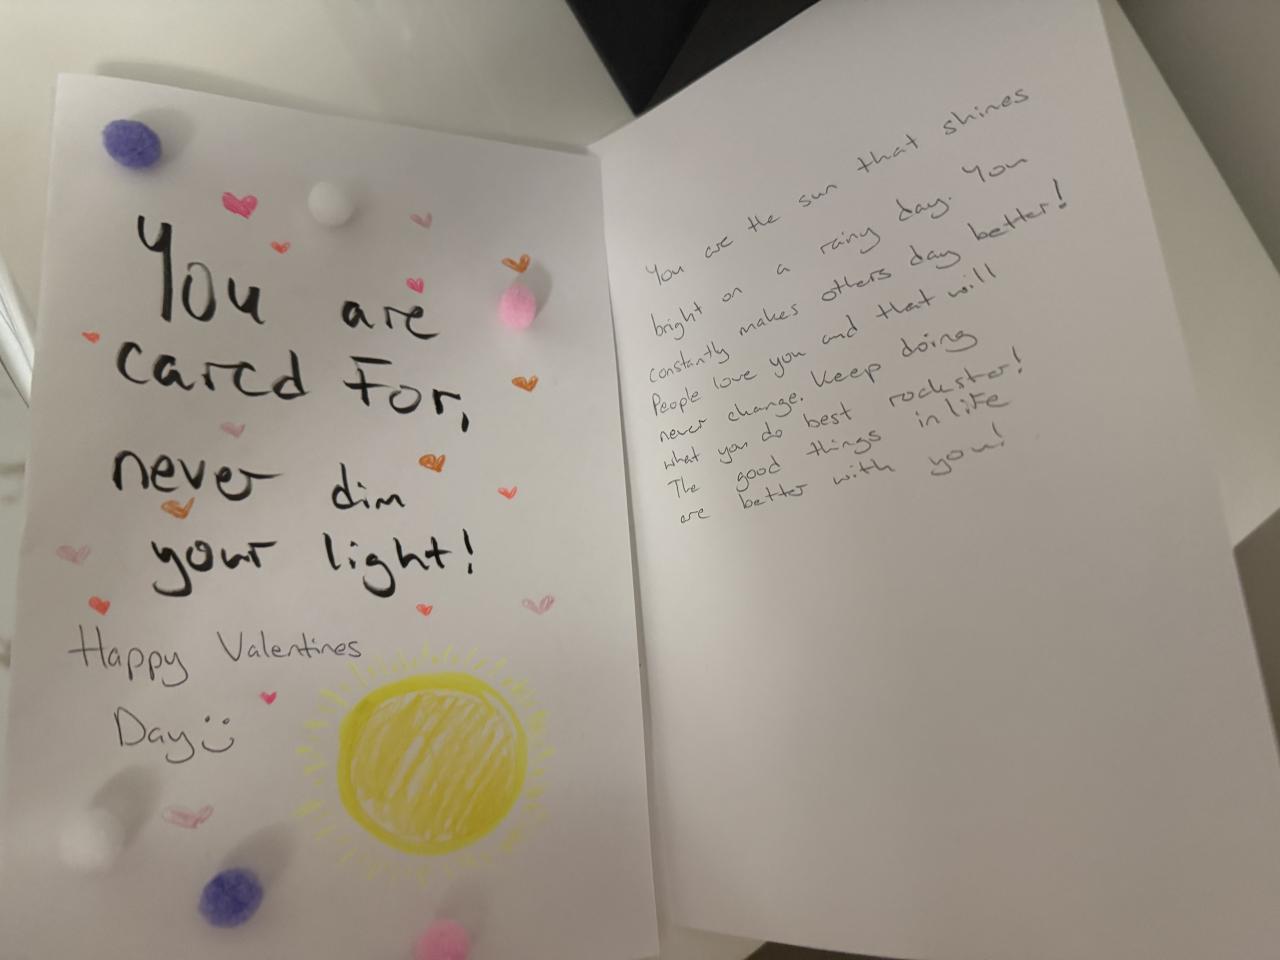 You are
cared For,
never dim
your light!
Happy Valentines
Day
You are the sun that shines
bright on a rainy day. You
constantly makes others day better!
People love you and that will
never change. Keep doing
what you do best rockster!
The good things in life
are better with you!